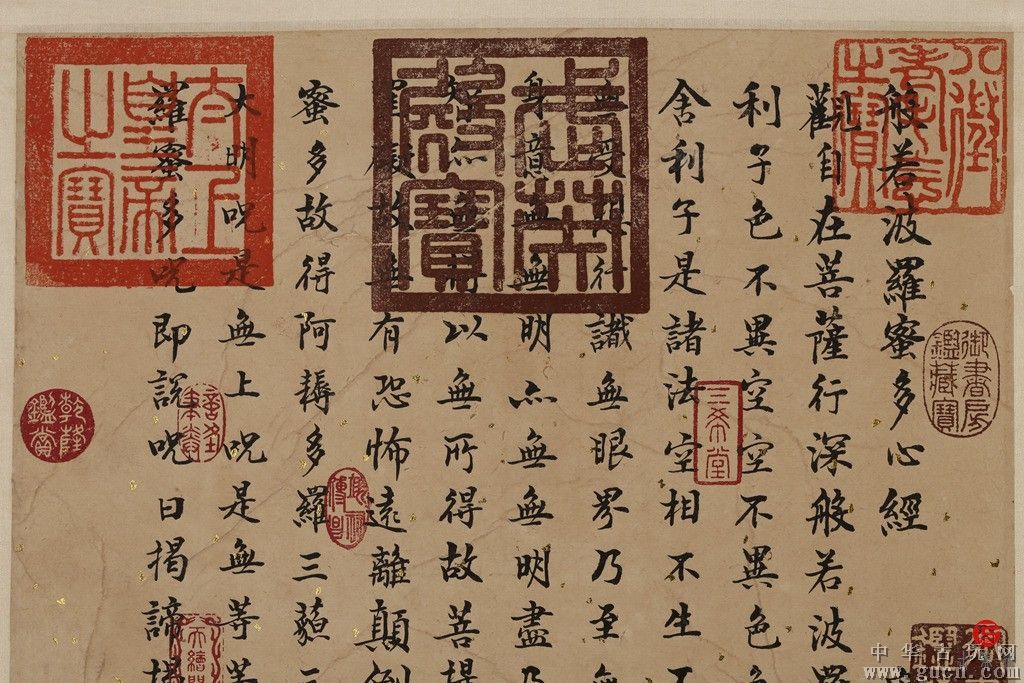 般若波羅蜜多心經
觀自在菩薩行深般若波羅
利子色不異空空不異色色
舍利子是諸法空相不生不
無受想行識無眼界乃至無
身意無無明亦無無明盡乃
智亦無無得以無所得故菩提
罣礙故無有恐怖遠離顛倒
蜜多故得阿耨多羅三藐三
大明呪是無上呪是無等等
羅蜜多呪即說呪曰揭諦揭
八徵耄念之寶
太上皇帝之寶
御書房鑑藏寶
三希堂
乾隆鑑賞
中华古玩网
www.gucn.com